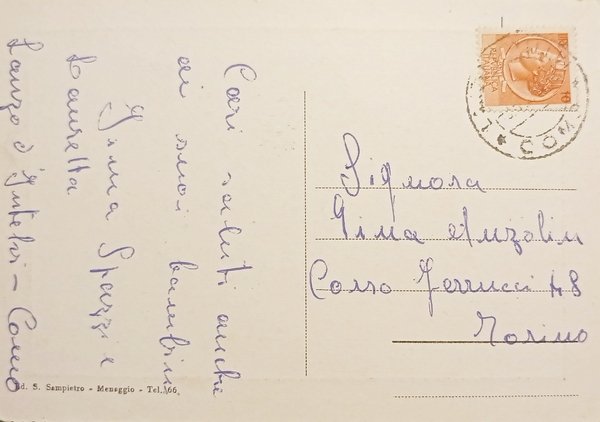 Cari saluti anche
ai suoi bambini
Gina Spazzi e
Lauretta
Lanzo d'Intelvi - Como
Ed. S. Sampietro - Menaggio - Tel. 66
REPUBBLICA ITALIANA
COMO
Signora
Gina Anzolin
Corso Ferrucci 48
Torino